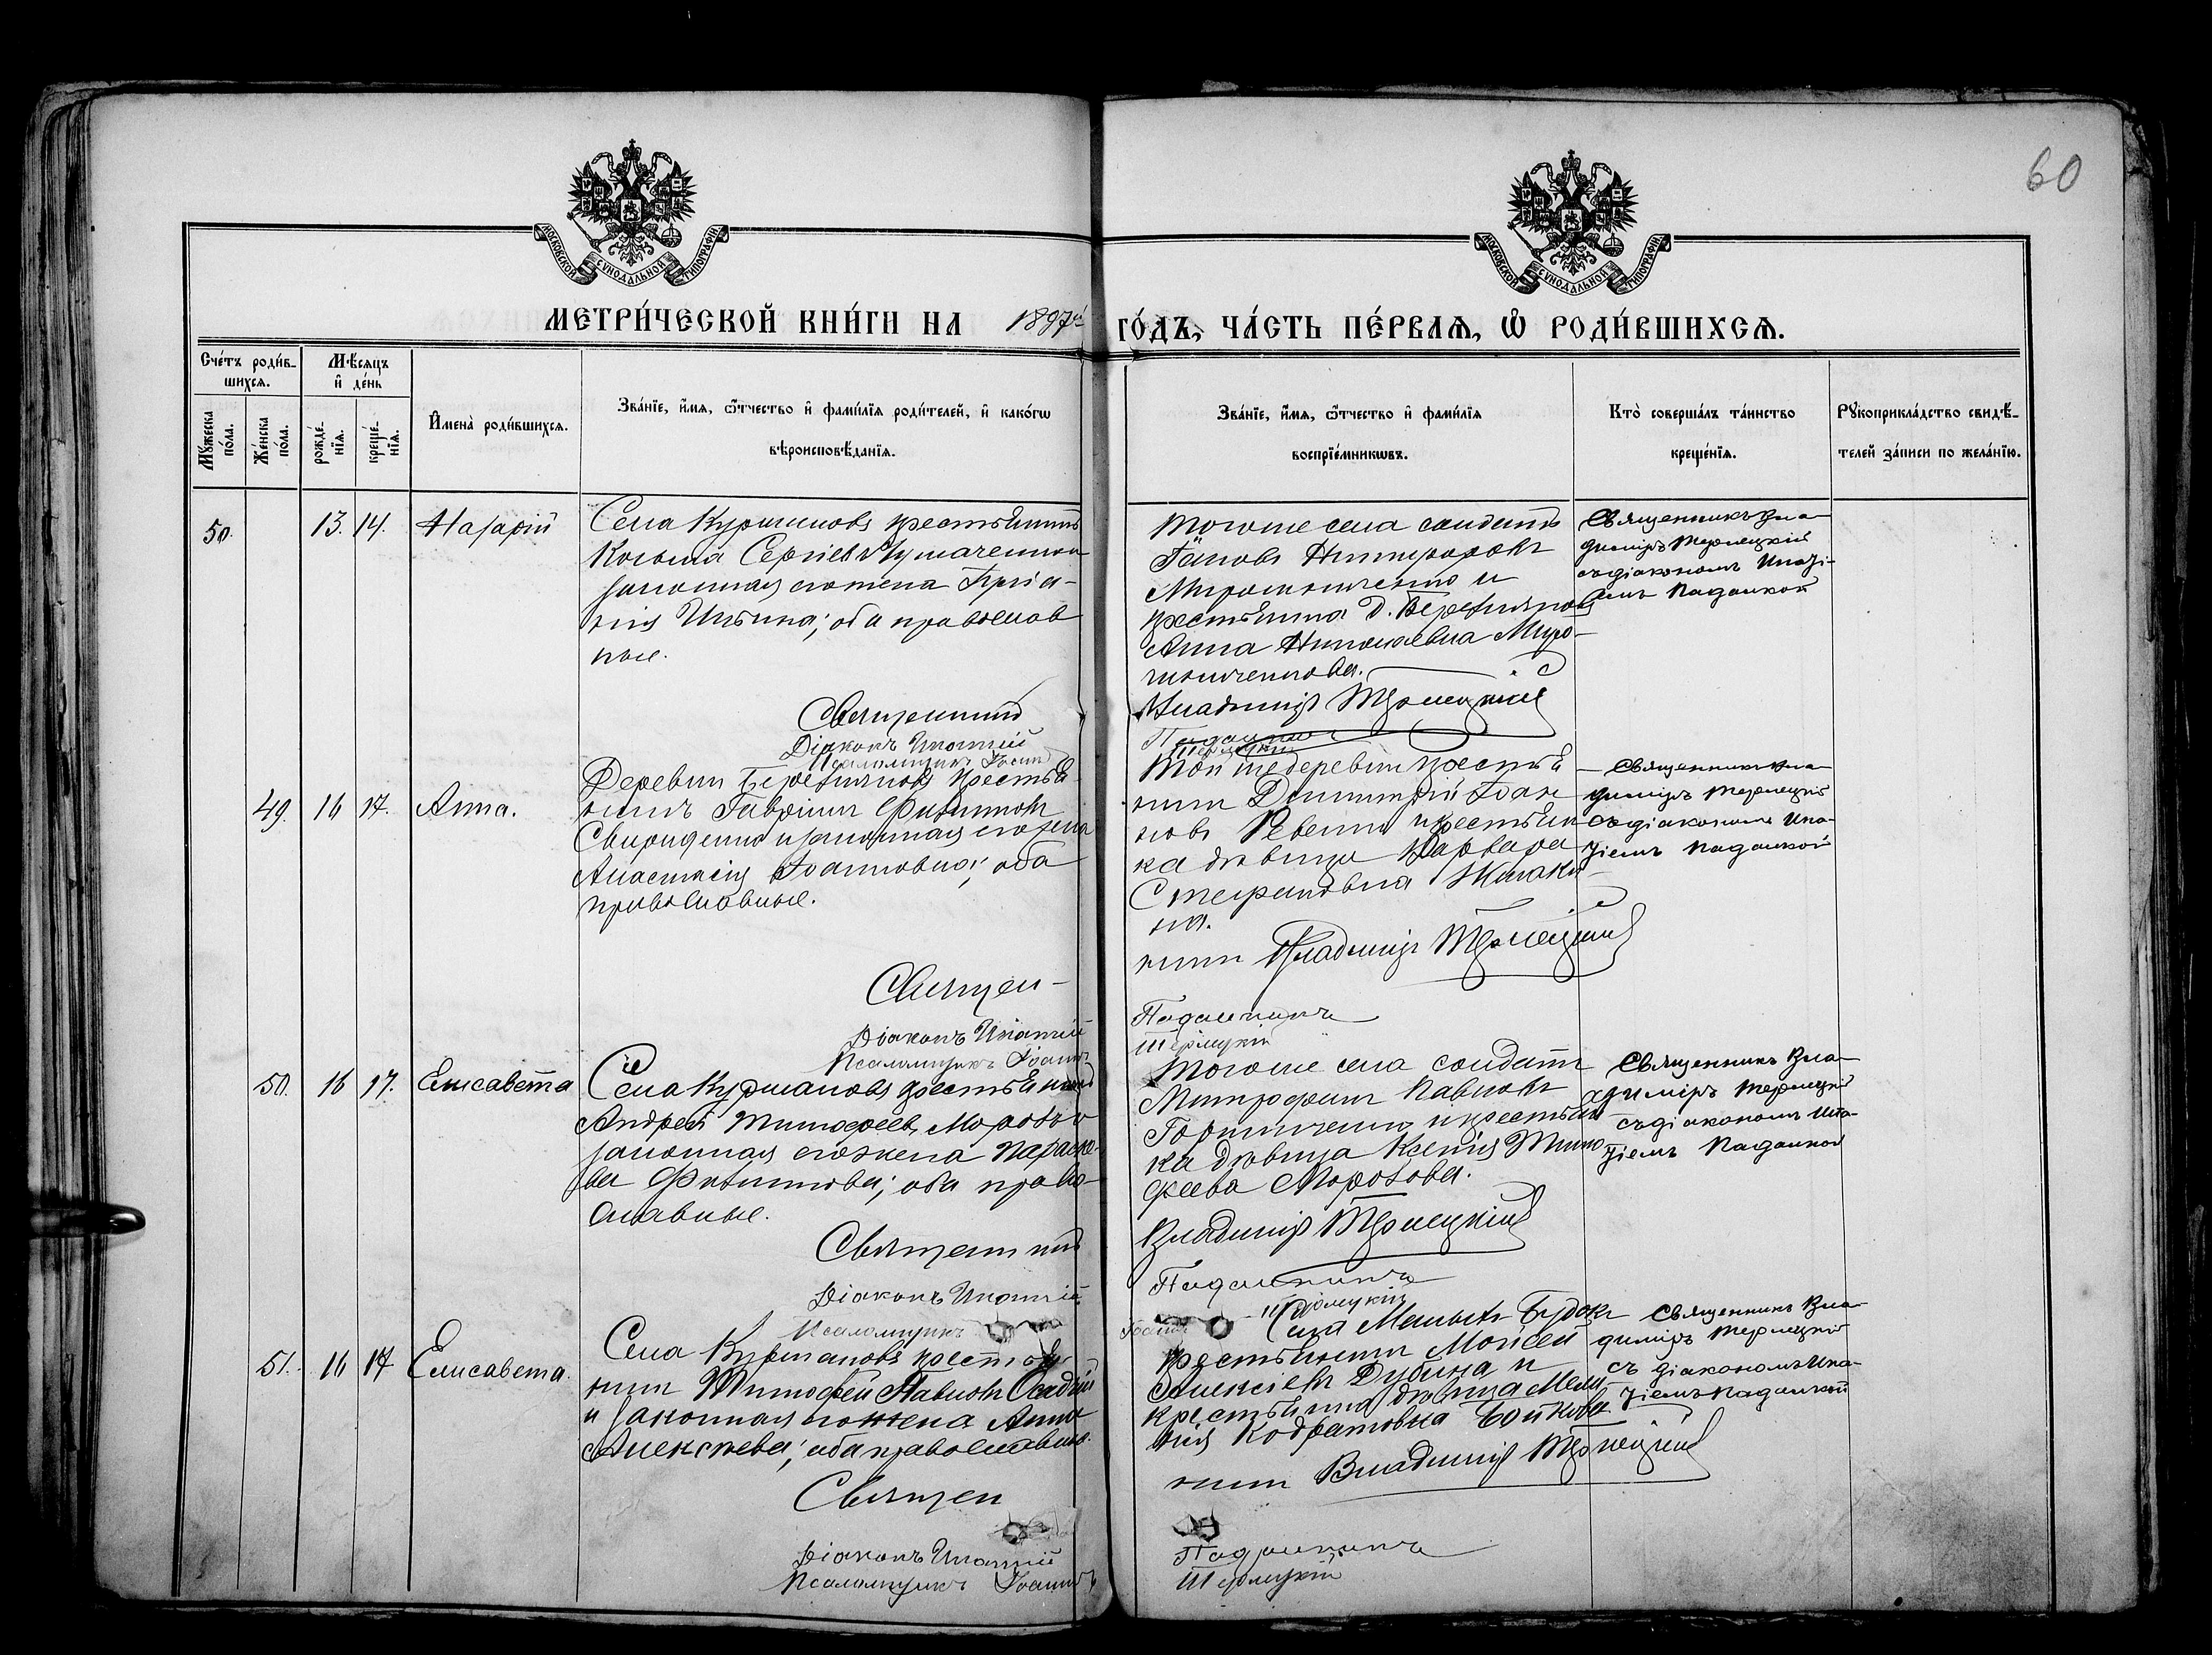 60
МОСКОВСКОЙ СѴНОДАЛЬНОЙ ТИПОГРАФІИ
МОСКОВСКОЙ СѴНОДАЛЬНОЙ ТИПОГРАФІИ
МЕТРИ́ЧЕСКОЙ КНИ́ГИ НА 1897й ГО́ДЪ, ЧА́СТЬ ПЕ́РВАѦ, Ѡ҆ РОДИ́ВШИХСѦ.
Сче́тъ роди́в-
шихсѧ.
Мѣ́сѧцъ
и҆ де́нь
Мꙋ́жеска
по́ла.
Же́нска
по́ла.
рожде́-
нїѧ.
креще́-
нїѧ.
И҆мена̀ роди́вшихсѧ.
Зва́нїе, и҆́мѧ, ѻ҆́тчество и҆ фами́лїѧ роди́телей, и҆ како́гѡ
вѣроисповѣ́данїѧ.
Зва́нїе, и҆́мѧ, ѻ҆́тчество и҆ фами́лїѧ
воспрїе́мникѡвъ.
Кто̀ соверша́лъ та́инство
креще́нїѧ.
Рꙋкоприкла́дство свидѣ́-
телей за́писи по жела́нїю.
50. 13. 14. Назарій
Села Курмановъ крестьянинъ
Косьма Сергіевъ
законная его жена
православ
ные.
Священникъ
Діаконъ Ипатій
Псаломщикъ Іоаннъ
Того же села солдатъ
Іаковъ Никифоровъ
Мирошниченко и
крестьянка д.
Анна Николаевна Миро-
шниченкова.
Владиміръ Терлецкій
Падалкинъ
Терлецкій
Священникъ Вла-
диміръ Терлецкій
съ діакономъ Ипаті-
емъ Падалкой
49. 16 17. Анна.
Деревни крестья-
нинъ Гавріилъ Филипповъ
Свириденко и законная его жена
Анастасія Іоанновна; оба
православные.
Священ-
Діаконъ Ипатій
Псаломщикъ Іоаннъ
Той же деревни крестья
нинъ Димитрій Іоан
новъ Ревенко и крестьян
ка дѣвица Варвара
Стефановна
на.
никъ Владиміръ Терлецкій
Падалкинъ
Терлецкій
Священникъ Вла-
диміръ Терлецкій
съ діакономъ Ипа-
тіемъ Падалкой
50. 16 17. Елисавета
Села Курмановъ крестьянинъ
Андрей Тимофеевъ Морозъ и
законная его жена Параске-
ва Филиппова; оба право-
славные.
Священникъ
Діаконъ Ипатій
Псаломщикъ
Того же села солдатъ
Митрофанъ Павловъ
и крестьян
ка дѣвица Ксенія Тимо
феева Морозова.
Владиміръ Терлецкій
Падалкинъ
Іоаннъ Терлецкій
Священникъ Вла-
диміръ Терлецкій
съ діакономъ Ипа-
тіемъ Падалкой
51. 16 17 Елисавета.
Села Курмановъ крестья
нинъ Тимофей Павловъ
и законная его жена Анна
Алексѣева; оба православные.
Священ
Діаконъ Ипатій
Псаломщикъ Іоаннъ
Села
крестьянинъ Моисей
Алексіевъ Дубина и
крестьянка дѣвица Мела-
нія Кодратовна Бойкова
никъ Владиміръ Терлецкій
Падалкинъ
Терлецкій
Священникъ Вла-
диміръ Терлецкій
съ діакономъ Ипа-
тіемъ Падалкой